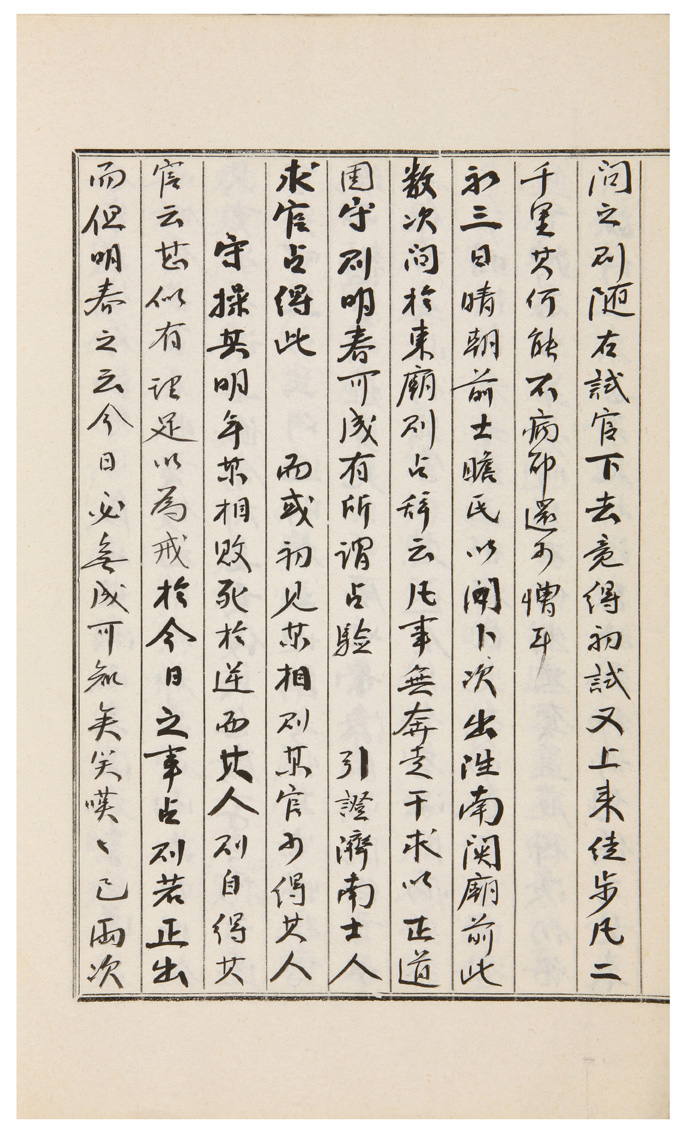 問之則隨右試官下去竟得初試又上來徒步凡二
千里其何能不病卽還可憎耳
初三日晴朝前士瞻氏以關卜次出往南關廟前此
数次問於東廟則占辞云凡事無奔走干求以正道
固守則明春可成有所謂占驗 引證濟南士人
求官占得此 而或初見某相則某官可得其人
守操其明年某相敗死於逆而其人則自得其
官云甚似有証足以為戒於今日之事占則若正出
而但明春之云今日必無成可知矣笑嘆〻已兩次